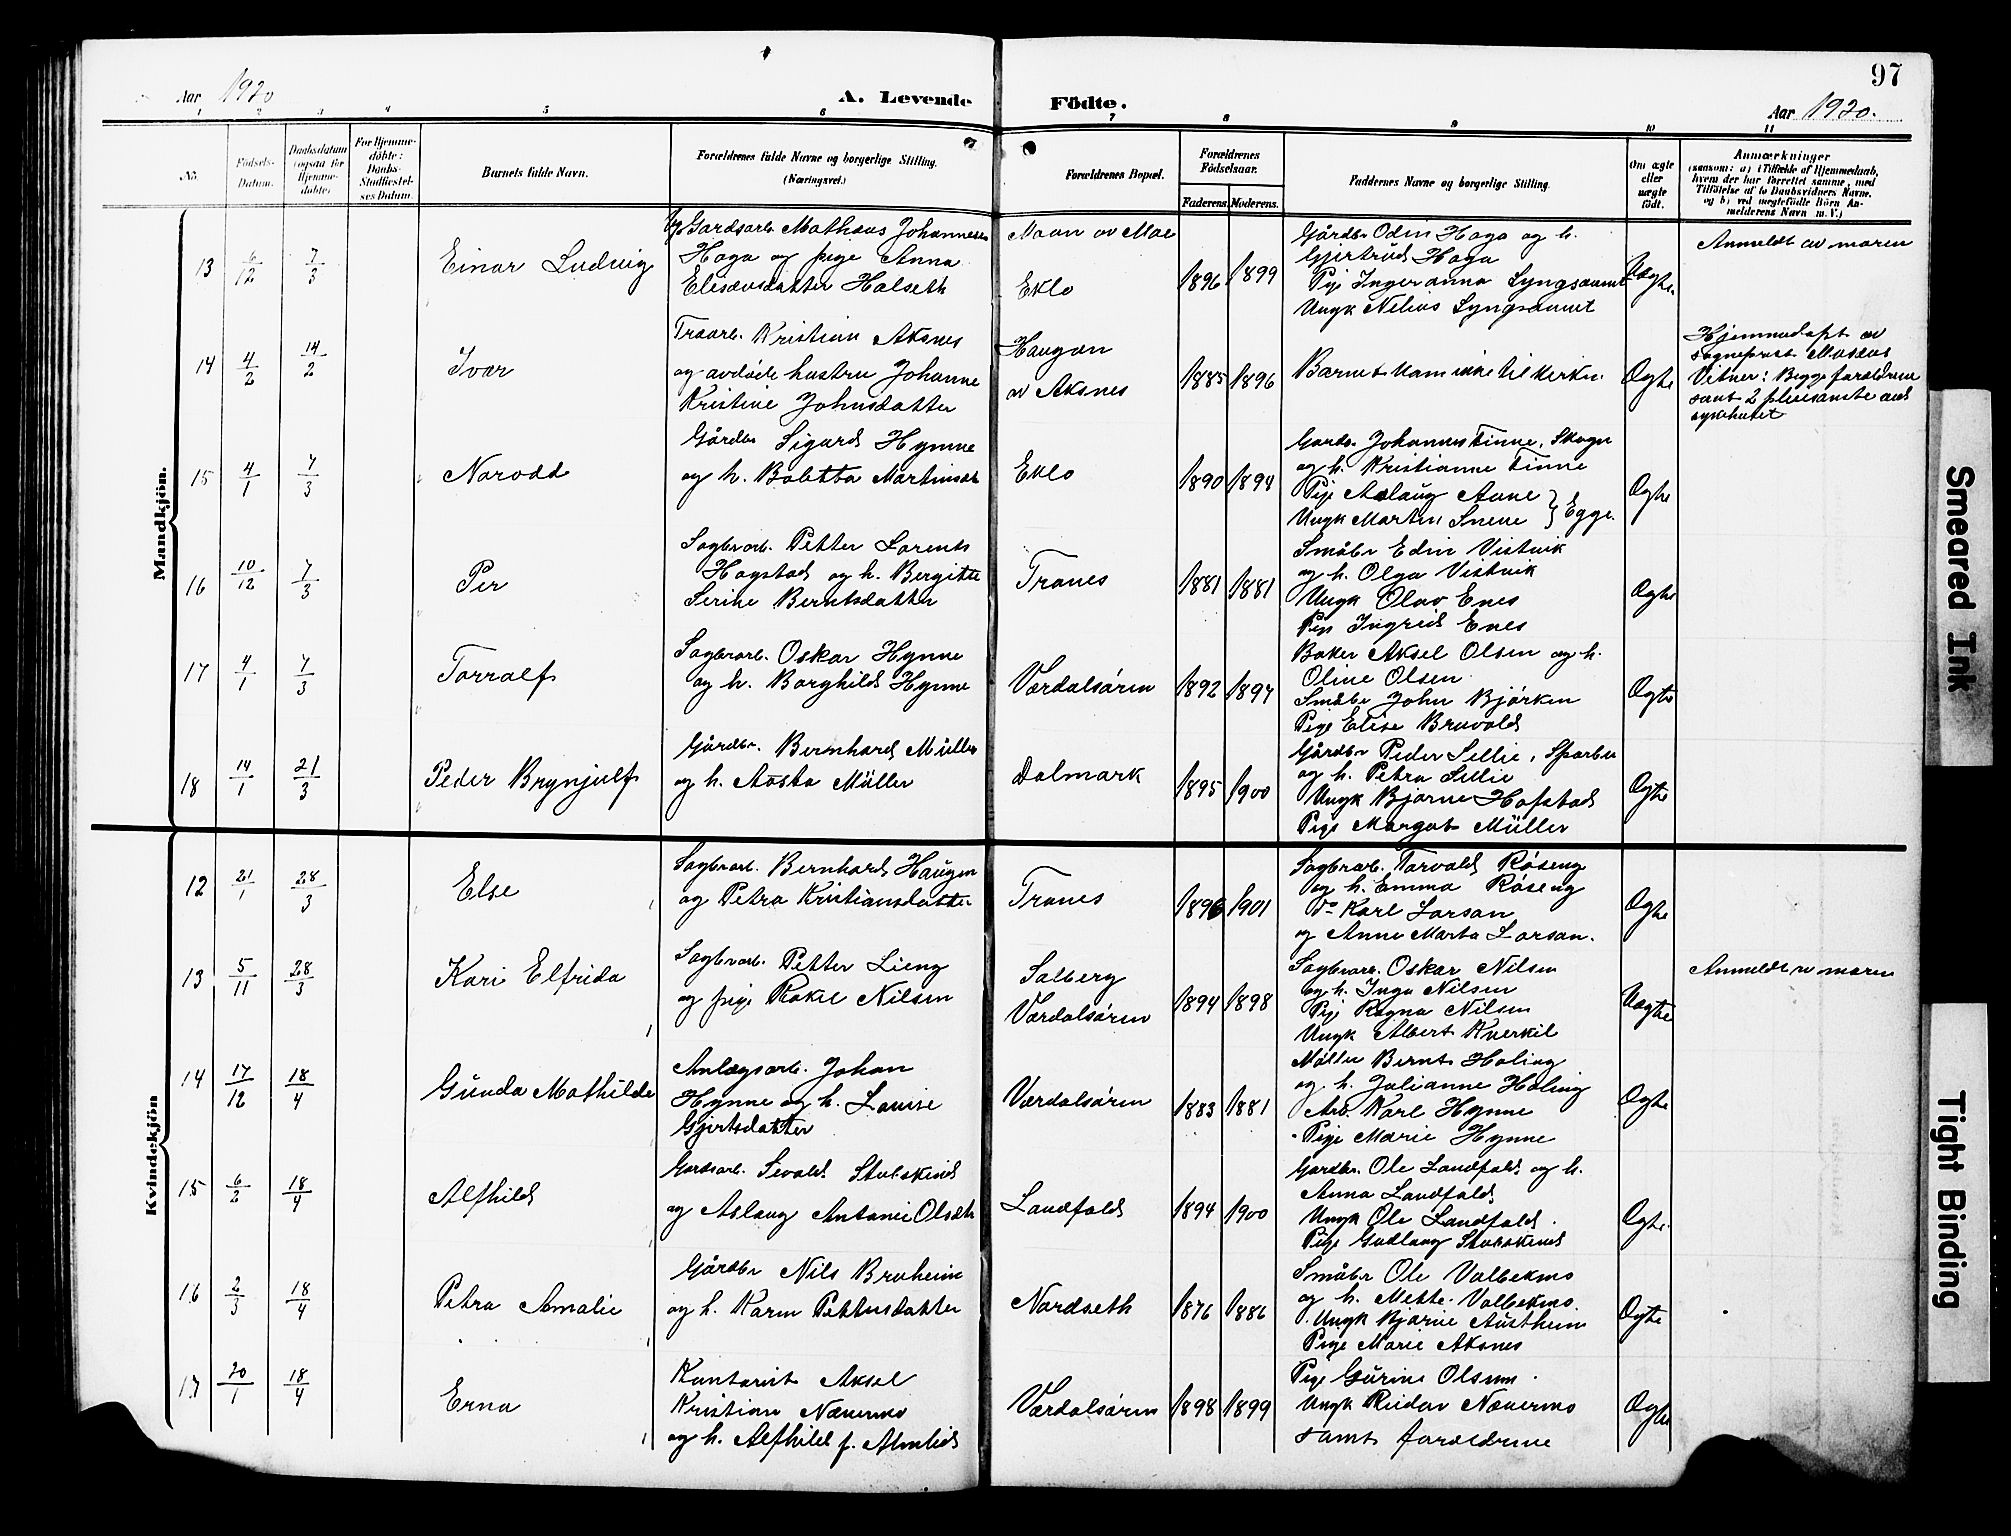 97
Aar 1920
A. Levende
Födte.
Aar 1920.
1 2 3 4 5 6 7 8 9 10 11
No.
Födsels-
Datum.
Daabsdatum
(ogsaa for
Hjemme-
döbte)
For Hjemme-
döbte:
Daabs-
Stadfæstel-
ses Datum.
Barnets fulde Navn.
Forældrenes fulde Navne og borgerlige Stilling.
(Næringsvei.)
Forældrenes Bopæl.
Forældrenes
Födselsaar.
Faderens.
Moderens.
Faddernes Navne og borgerlige Stilling.
Om ægte
eller
uægte
födt.
Anmærkninger
(saasom: a) i Tilfælde af Hjemmedaab,
hvem der har forrettet samme, med
Tilföielse af to Daabsvidners Navne,
og b) ved uægtefödte Börn An-
melderens Navn m. V.)
Mandkjön.
13
6/12
7/3
Einar Ludvig
Gardsarb. Mathæus Johannesen
Haga og pige Anna
Eliseusdatter Halseth
Maan av Mae
Eklo
1896
1899
Gårdbr. Odin Haga og h.
Gjertrud Haga
Pige Ingeranna Lyngsaunet
Ungk Nelius Lyngsaunet
Uægte
Anmeldt av moren
14
4/2
14/2
Ivar
Kristian Aksnes
og avdøde hustru Johanne
Kristine Johnsdatter
Haugan
av Aksnes
1885
1896
Barnet kom ikke til kirken
Ægte
Hjemmedøpt av
sogneprest
Vitner: Begge forældrene
samt 2 pleiersker ved
sykehuset
15
4/1
7/3
Narodd
Gårdbr Sigurd Hynne
og h. Boletta Martinsdtr
Eklo
1890
1894
Gardbr. Johannes Tinne, Skogn
og h. Kristianne Tinne
Pige Aslaug Aune
Ungk Martin Snene } Egge.
Ægte
16
10/12
7/3
Per
Sagbrarb. Petter Lorents
Hagstad og h. Bergitte
Serine Berntsdatter
Tranes
1881
1881
Småbr Edin Vistvik
og h. Olga Vistvik
Ungk Olav Enes
Pige Ingrid Enes
Ægte
17
4/1
7/3
Torralf
Sagbrarb. Oskar Hynne
og h. Borghild Hynne
Værdalsøren
1892
1897
Baker Aksel Olsen og h.
Oline Olsen
Småbr John Bjørken
Pige Elise Bruvold
Ægte
18
14/1
21/3
Peder Brynjulf
Gårdbr. Bernhard Müller
og h. Aasta Müller
Dalmark
1895
1900
Gårdbr Peder Lillie, Sparbu
og h. Petra Lillie
Ungk Bjarne Hofstad
Pige Margot Müller
Ægte
Kvindekjön
12
21/1
28/3
Else
Sagbrarb. Bernhard Haugen
og Petra Kristiansdatter
Tranes
1896
1901
Sagbrarb. Torvald Røseng
og h. Emma Røseng
do Karl Larsen
og Anne Marta Larsen.
Ægte
13
5/11
28/3
Kari Elfrida
Sagbrarb. Petter Lieng
og pige Rakel Nilsen
Salberg
Værdalsøren
1894
1898
Sagbrarb. Oskar Nilsen
og h. Inga Nilsen
Pige Ragna Nilsen
Ungk Albert Kverkil
Uægte
Anmeldt av moren
14
17/12
18/4
Gunda Mathilde
Anlægsarb. Johan
Hynne og h. Louise
Gjertsdatter
Værdalsøren
1883
1881
Møller Bernt Holing
og h. Julianne Holing
Arb. Karl Hynne
Pige Marie Hynne
Ægte
15
6/2
18/4
Alfhild
Gardsarb. Sevald Stubskind
og Aslaug Antonie Olsdtr
Landfald
1894
1900
Gardbr. Ole Landfald og h.
Anna Landfald
Ungk Ole Landfald.
Pige Gudlaug Stubskind
Ægte.
16
2/3
18/4
Petra Amalie
Gårdbr Nils Bruheim
og h. Karen Pettersdatter
Nordseth
1876
1886
Småbr Ole Valbekmo
og h. Mette Valbekmo.
Ungk Bjarne Austheim
Pige Marie Aksnes
Ægte
17
20/1
18/4
Erna
Kontorist Aksel
Kristian Nævermo
og h. Alfhild f. Almlid
Værdalsøren
1898
1899
Pige Gurine Olsen.
Ungk Reidar Nævermo
samt forældrene
Ægte
Smeared Ink
Tight Binding